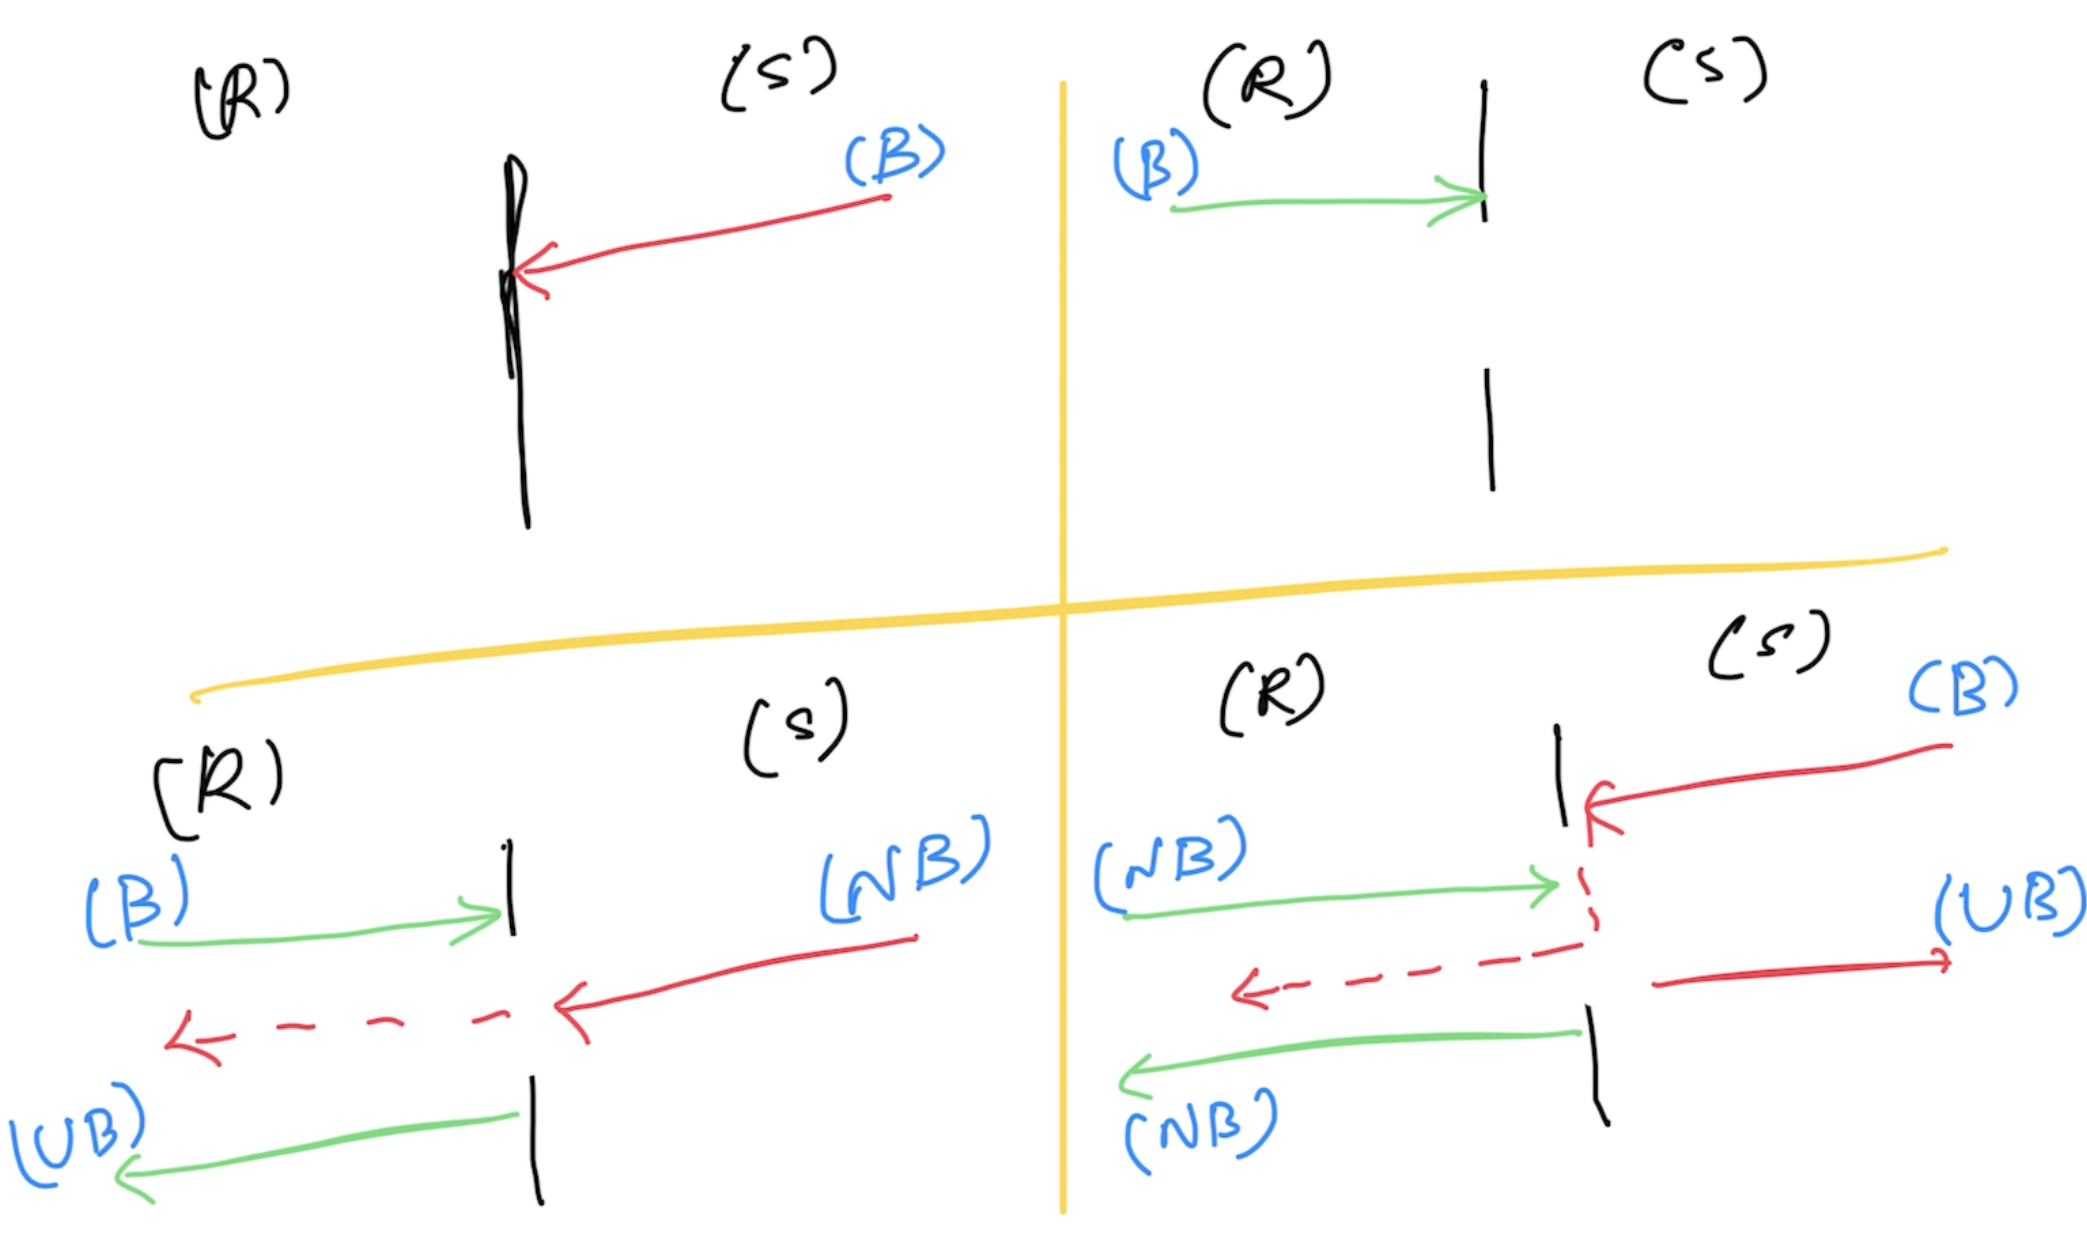 (R) (S)
(B)
(R) (S)
(B)
(R) (S)
(B) (NB)
(UB)
(R) (S)
(B)
(NB)
(UB)
(NB)